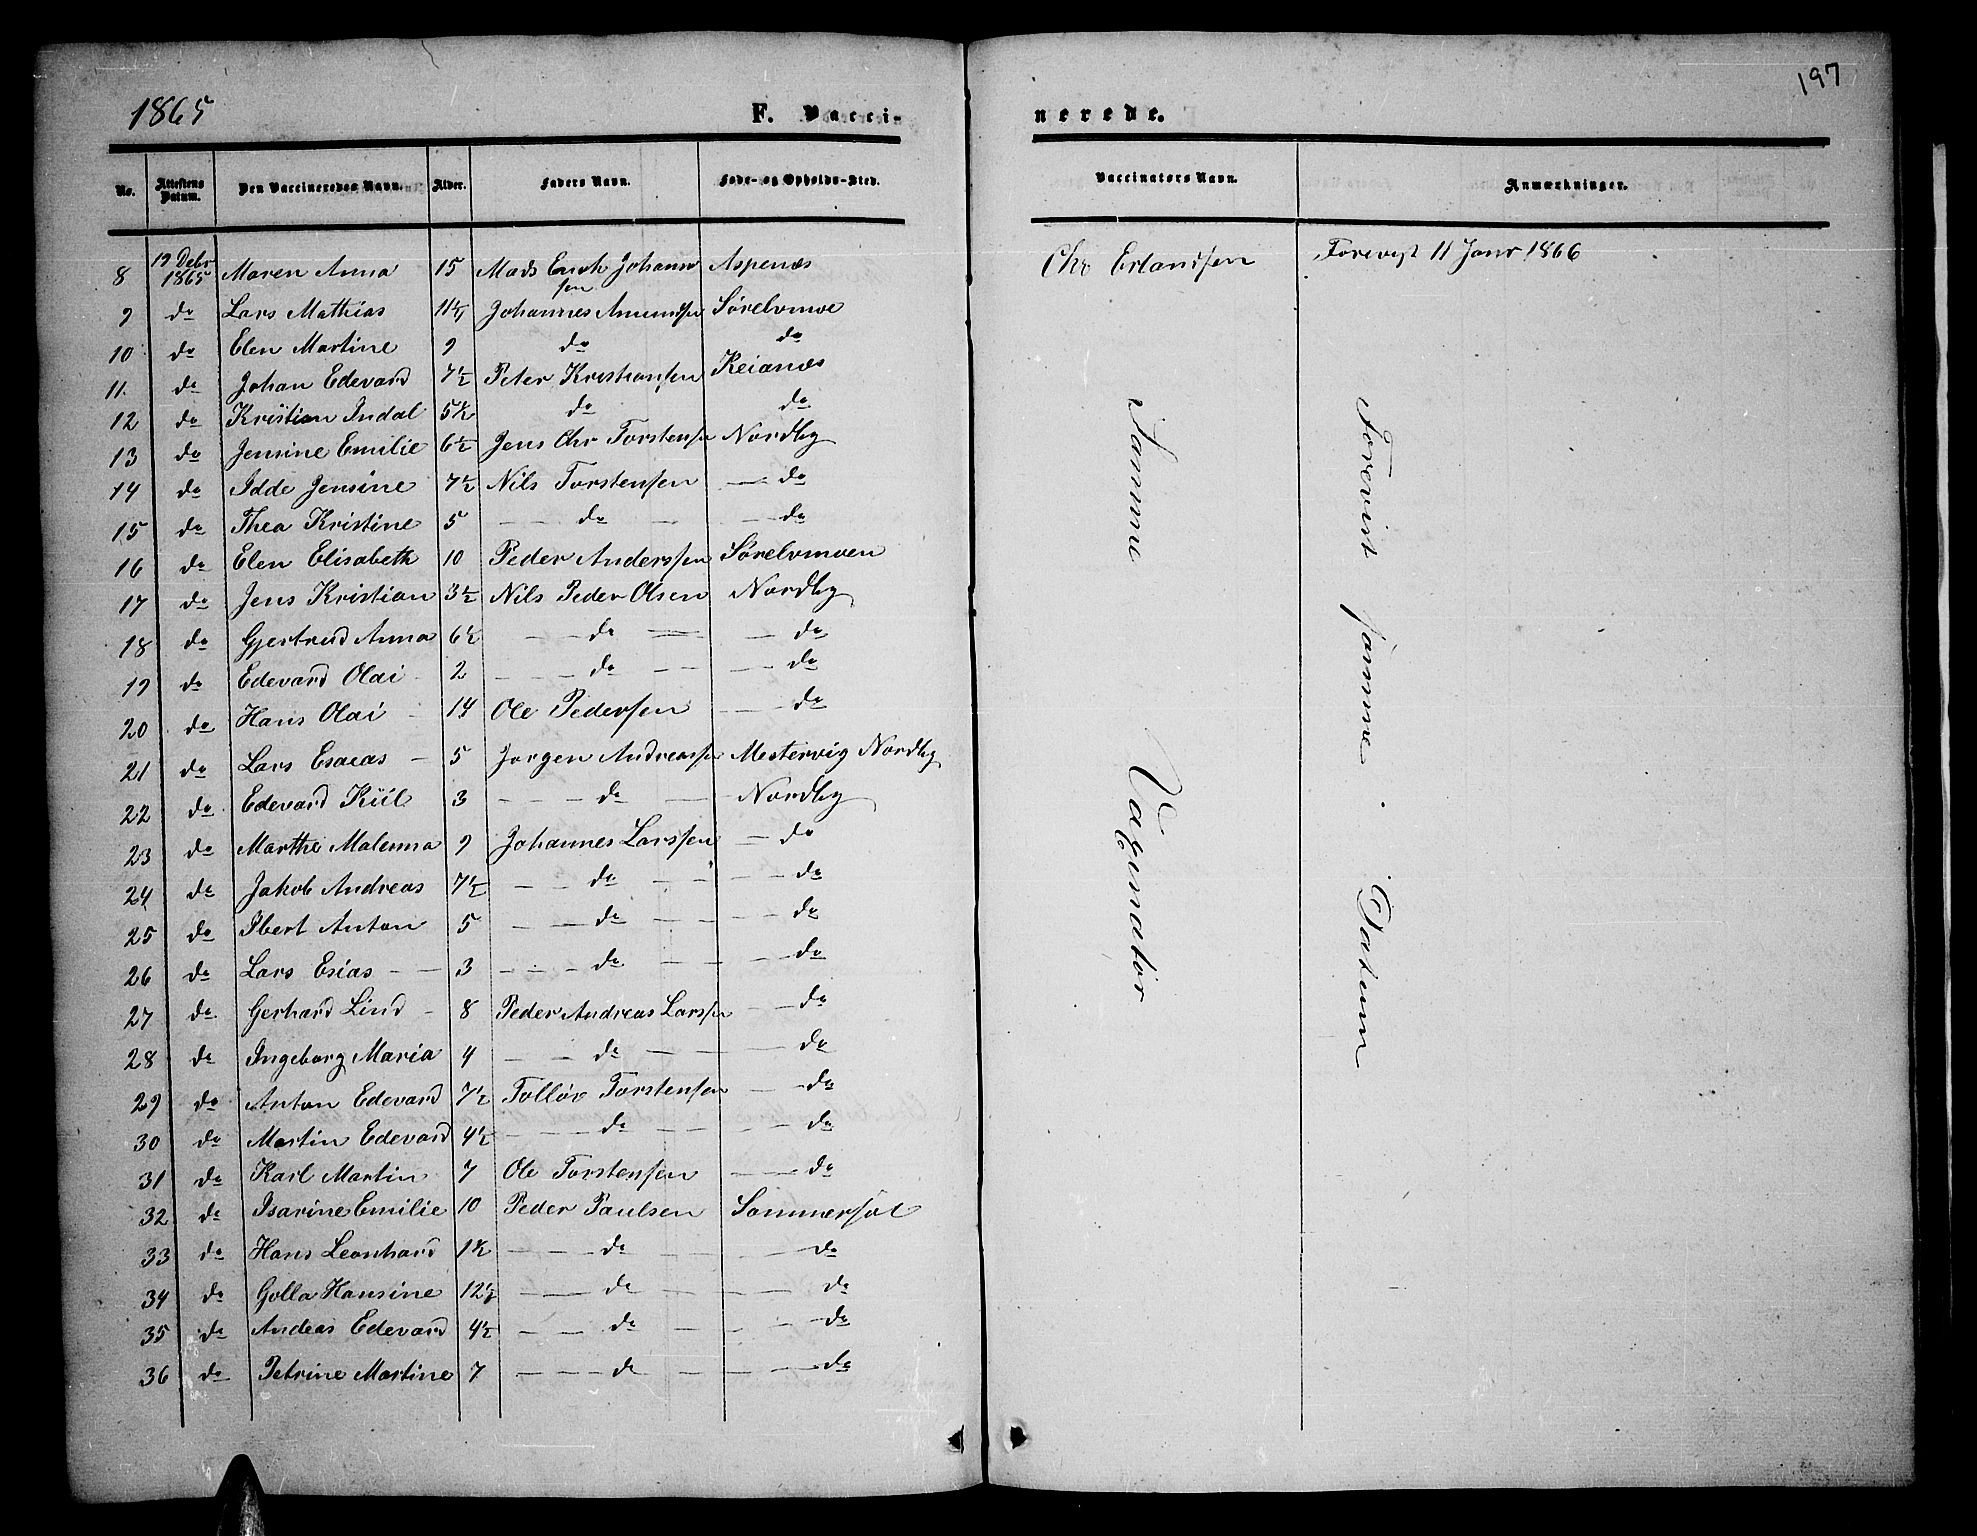 197
1865 F. Vaccinerede.
No. Attestens Datum. Den Vaccineredes Navn. Alder. Faders Navn. Føde- og Opholds-Sted. Vaccinatørs Navn. Anmærkninger.
8 19 Debr 1865 Maren Anna 15 Mads Enok Johannsen Aspenæs Chr Erlandsen Forevist 11 Janr 1866
9 do Lars Mathias 11½ Johannes Amundsen Sørelvmoe
10 do Elen Martine 9 do do
11 do Johan Edevard 7½ Peter Kristiansen Keianæs
12 do Kristian Indal 5½ do do
13 do Jensine Emilie 6½ Jens Chr Torstensen Nordby
14 do Idde Jensine 7½ Nils Torstensen — do
15 do Thea Kristine 5 — do — — do
16 do Elen Elisabeth 10 Peder Anderssen Sørelvmoen
17 do Jens Kristian 3½ Nils Peder Olsen Nordby
18 do Gjertrud Anna 6½ — do — — do
19 do Edevard Olai 2 — do — — do
20 do Hans Olai 14 Ole Pedersen — do
21 do Lars Esaias 5 Jørgen Andreassen Mestervig Nordby
22 do Edevard Kiil 3 — do — Nordby
23 do Marthe Malenna 9 Johannes Larssen — do
24 do Jakob Andreas 7½ — do — — do
25 do Ibert Anton 5 — do — — do
26 do Lars Esias 3 — do — — do
27 do Gerhard Lind 8 Peder Andreas Larssen — do
28 do Ingeborg Maria 4 — do — — do
29 do Anton Edevard 7½ Tolløv Torstensen — do
30 do Martin Edevard 4½ — do — — do
31 do Karl Martin 7 Ole Torstensen — do
32 do Isarine Emilie 10 Peder Paulsen Sommersæt
33 do Hans Leonhard 1½ — do — — do
34 do Golla Hansine 12½ — do — — do
35 do Andeas Edevard 4½ — do — — do
36 do Petrine Martine 7 — do — — do
Samme Vaxinatør
Forevist samme Datum